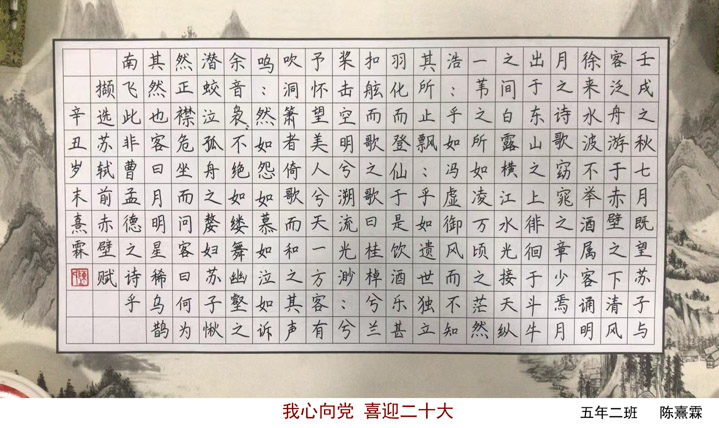 壬戌之秋七月既望苏子与
客泛舟游于赤壁之下清风
徐来水波不举酒属客诵明
月之诗歌窈窕之章少焉月
出于东山之上徘徊于斗牛
之间白露横江水光接天纵
一苇之所如凌万顷之茫然
浩：乎如冯虚御风而不知
其所止飘：乎如遗世独立
羽化而登仙于是饮酒乐甚
扣舷而歌之歌曰桂棹兮兰
桨击空明兮溯流光渺：兮
予怀望美人兮天一方客有
吹洞箫者倚歌而和之其声
呜：然如怨如慕如泣如诉
余音袅：不绝如缕舞幽壑之
潜蛟泣孤舟之嫠妇苏子愀
然正襟危坐而问客曰何为
其然也客曰月明星稀乌鹊
南飞此非曹孟德之诗乎
撷选苏轼前赤壁赋
辛丑岁末熹霖
我心向党 喜迎二十大
五年二班 陈熹霖